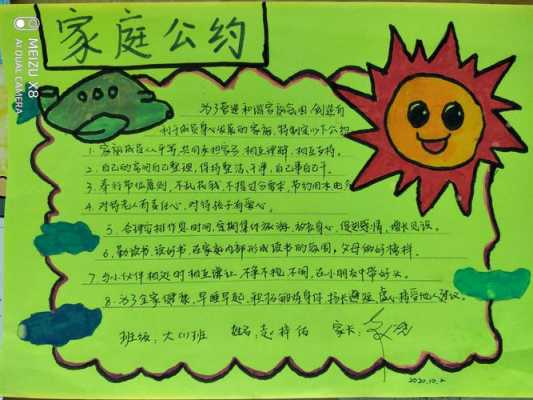 MEIZU X8
AI DUAL CAMERA
家庭公约
为了营造和谐家庭氛围,创造有
利于成员身心发展的家庭,特制定以下公约
1. 家庭成员人人平等,共同承担家务,相互理解,相互支持。
2. 自己的房间自己整理,保持整洁、干净,自己事自己干。
3. 奉行节俭原则,不乱花钱,不提过分要求,节约用水电
4. 对待老人有责任心,对待孩子有爱心。
5. 合理安排作息时间,定期集体旅游,放松身心,促进感情,增长见识。
6. 勤读书、读好书,在家庭内部形成读书的氛围,父母做好榜样。
7. 与小伙伴相处时相互谦让,不争不抢、不闹,在小朋友中带好头。
8. 为了全家健康,早睡早起,积极锻炼身体,扬长避短,虚心接受他人建议。
班级:大(1)班 姓名:赵梓 家长:
2020.10.2